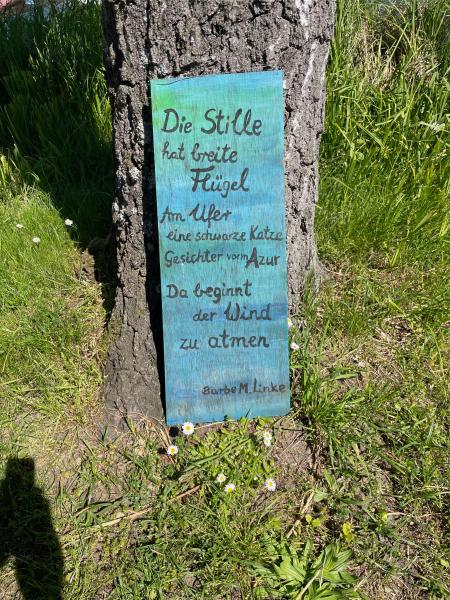 Die Stille
hat breite
Flügel
Am Ufer
eine schwarze Katze
Gesichter vorm Azur
Da beginnt
der Wind
zu atmen
Barbe M. Linke